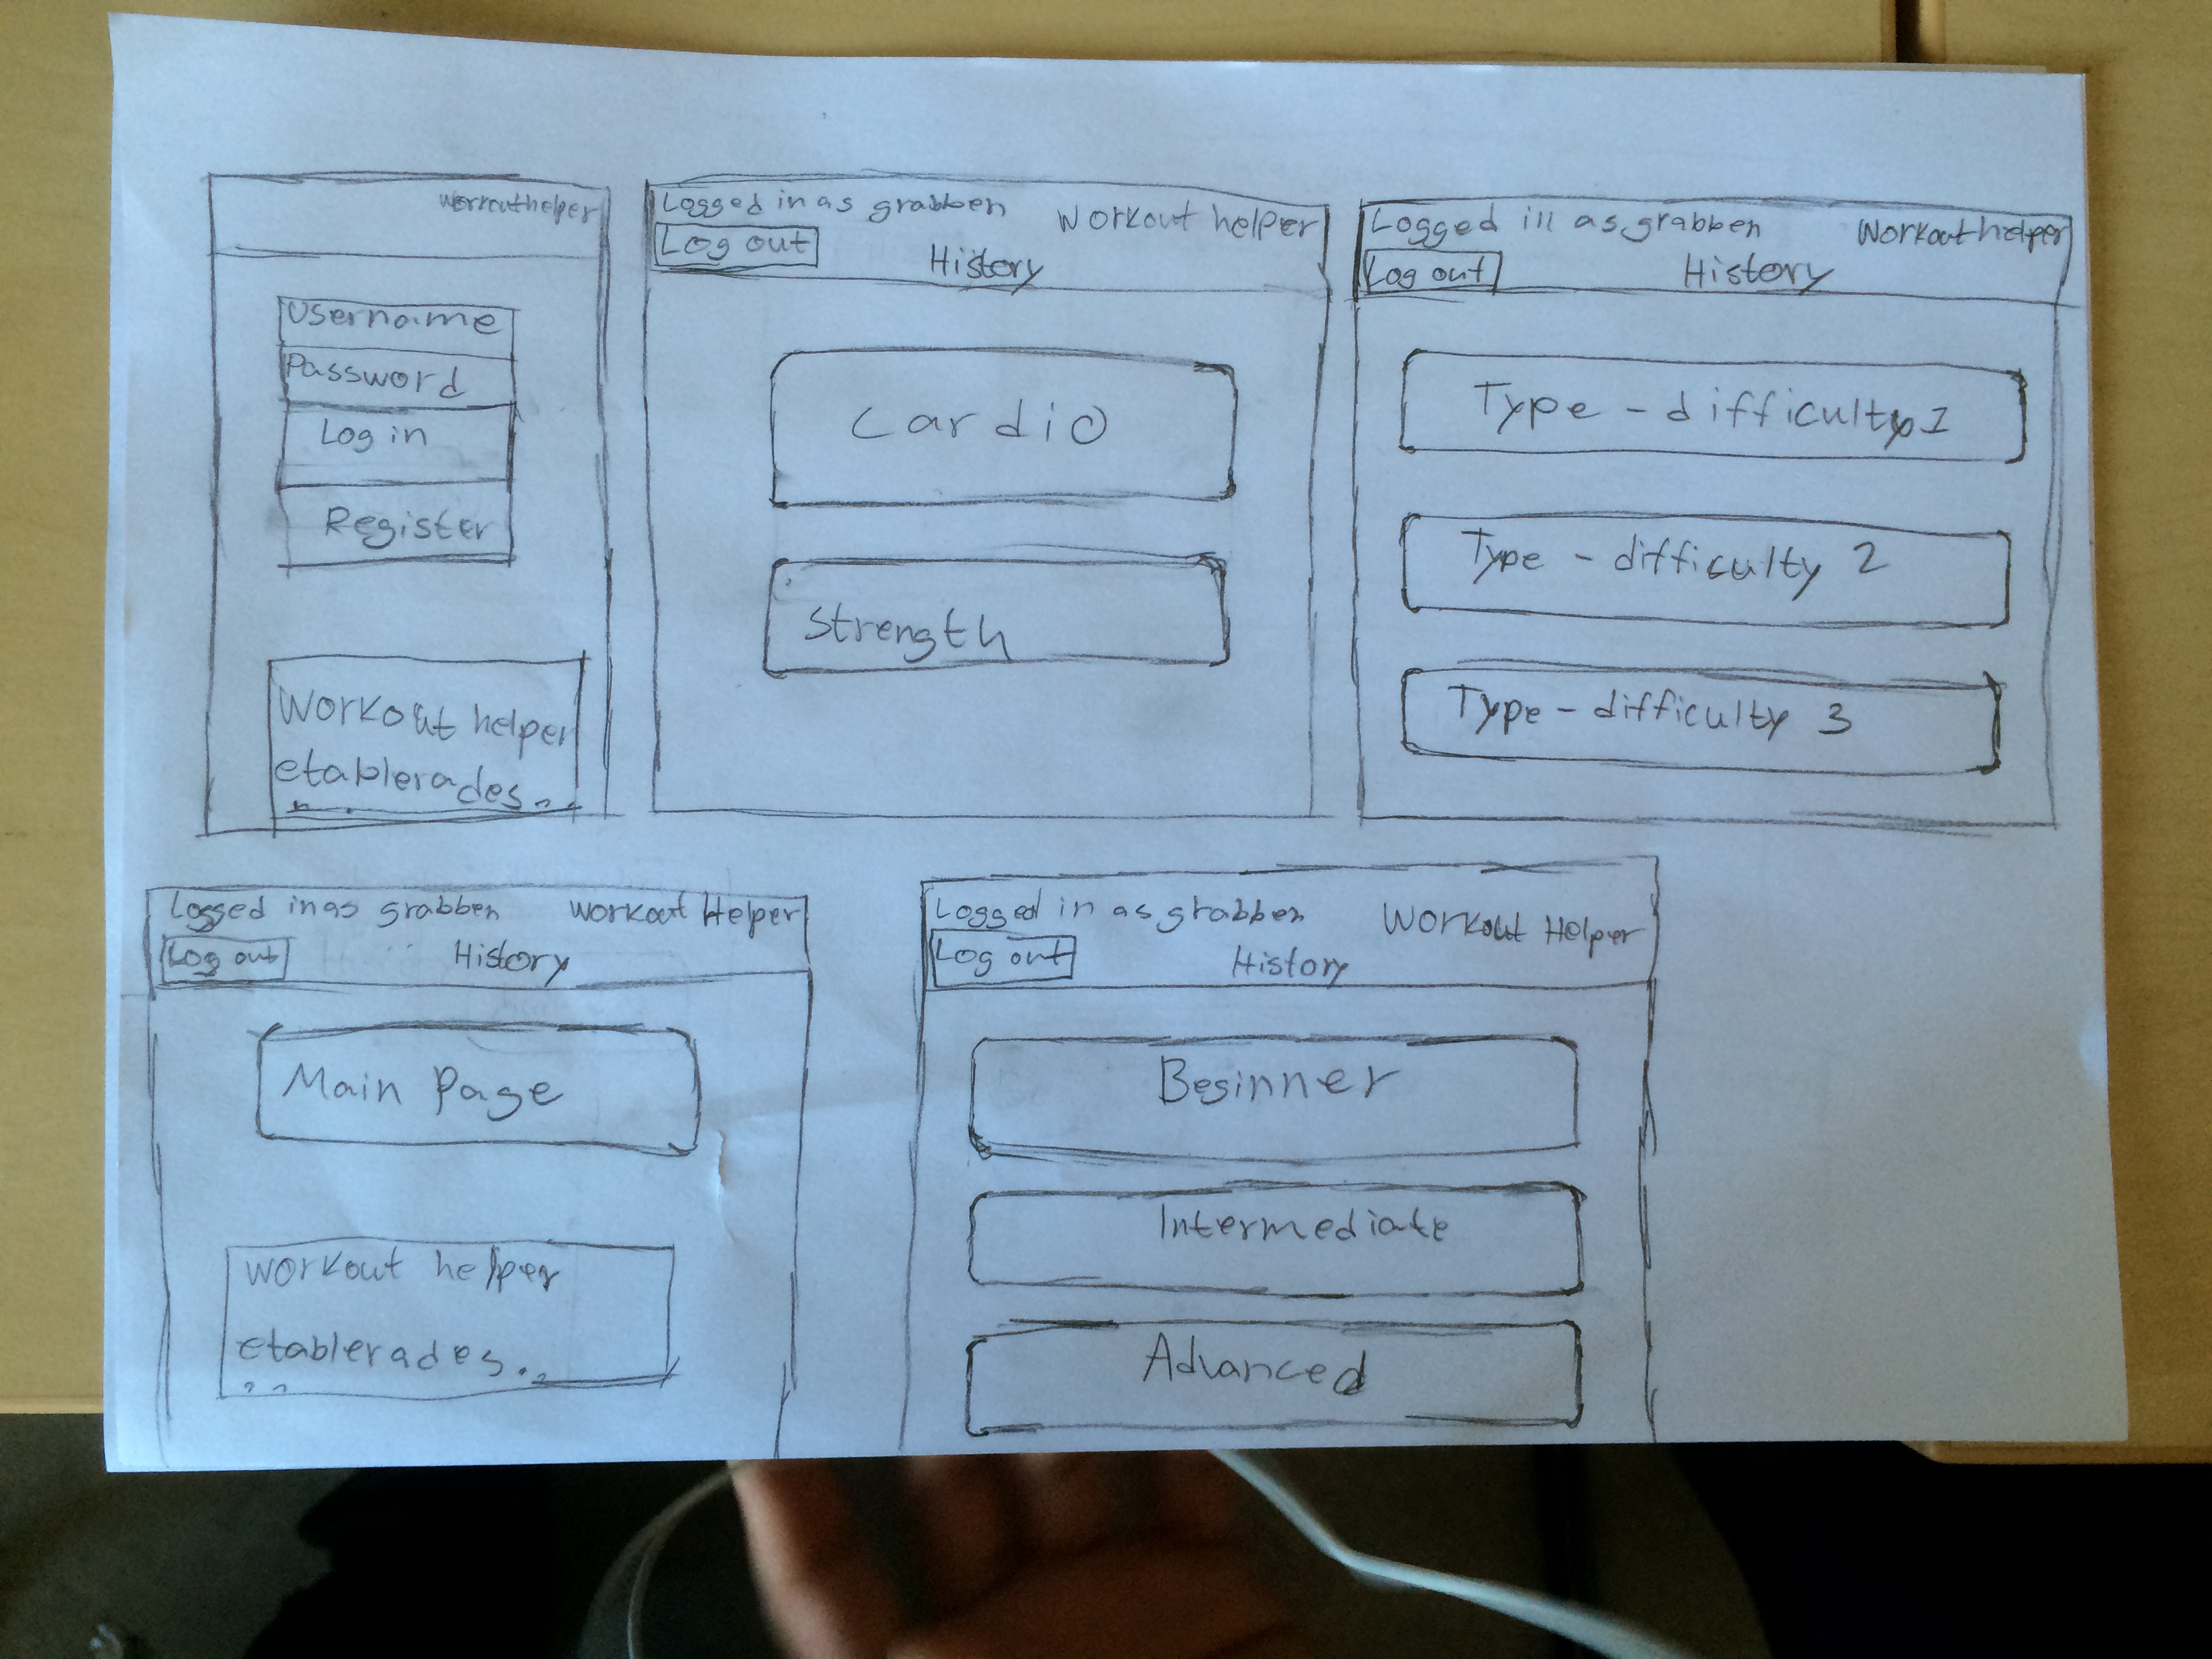 Workouthelper
Username
Password
Log in
Register
Workout helper
etablerades...
Logged in as grabben
Workout helper
Log out
History
Cardio
Strength
Logged in as grabben
Workout helper
Log out
History
Type - difficulty 1
Type - difficulty 2
Type - difficulty 3
Logged in as grabben
Workout Helper
Log out
History
Main Page
Workout helper
etablerades...
Logged in as grabben
Workout Helper
Log out
History
Beginner
Intermediate
Advanced